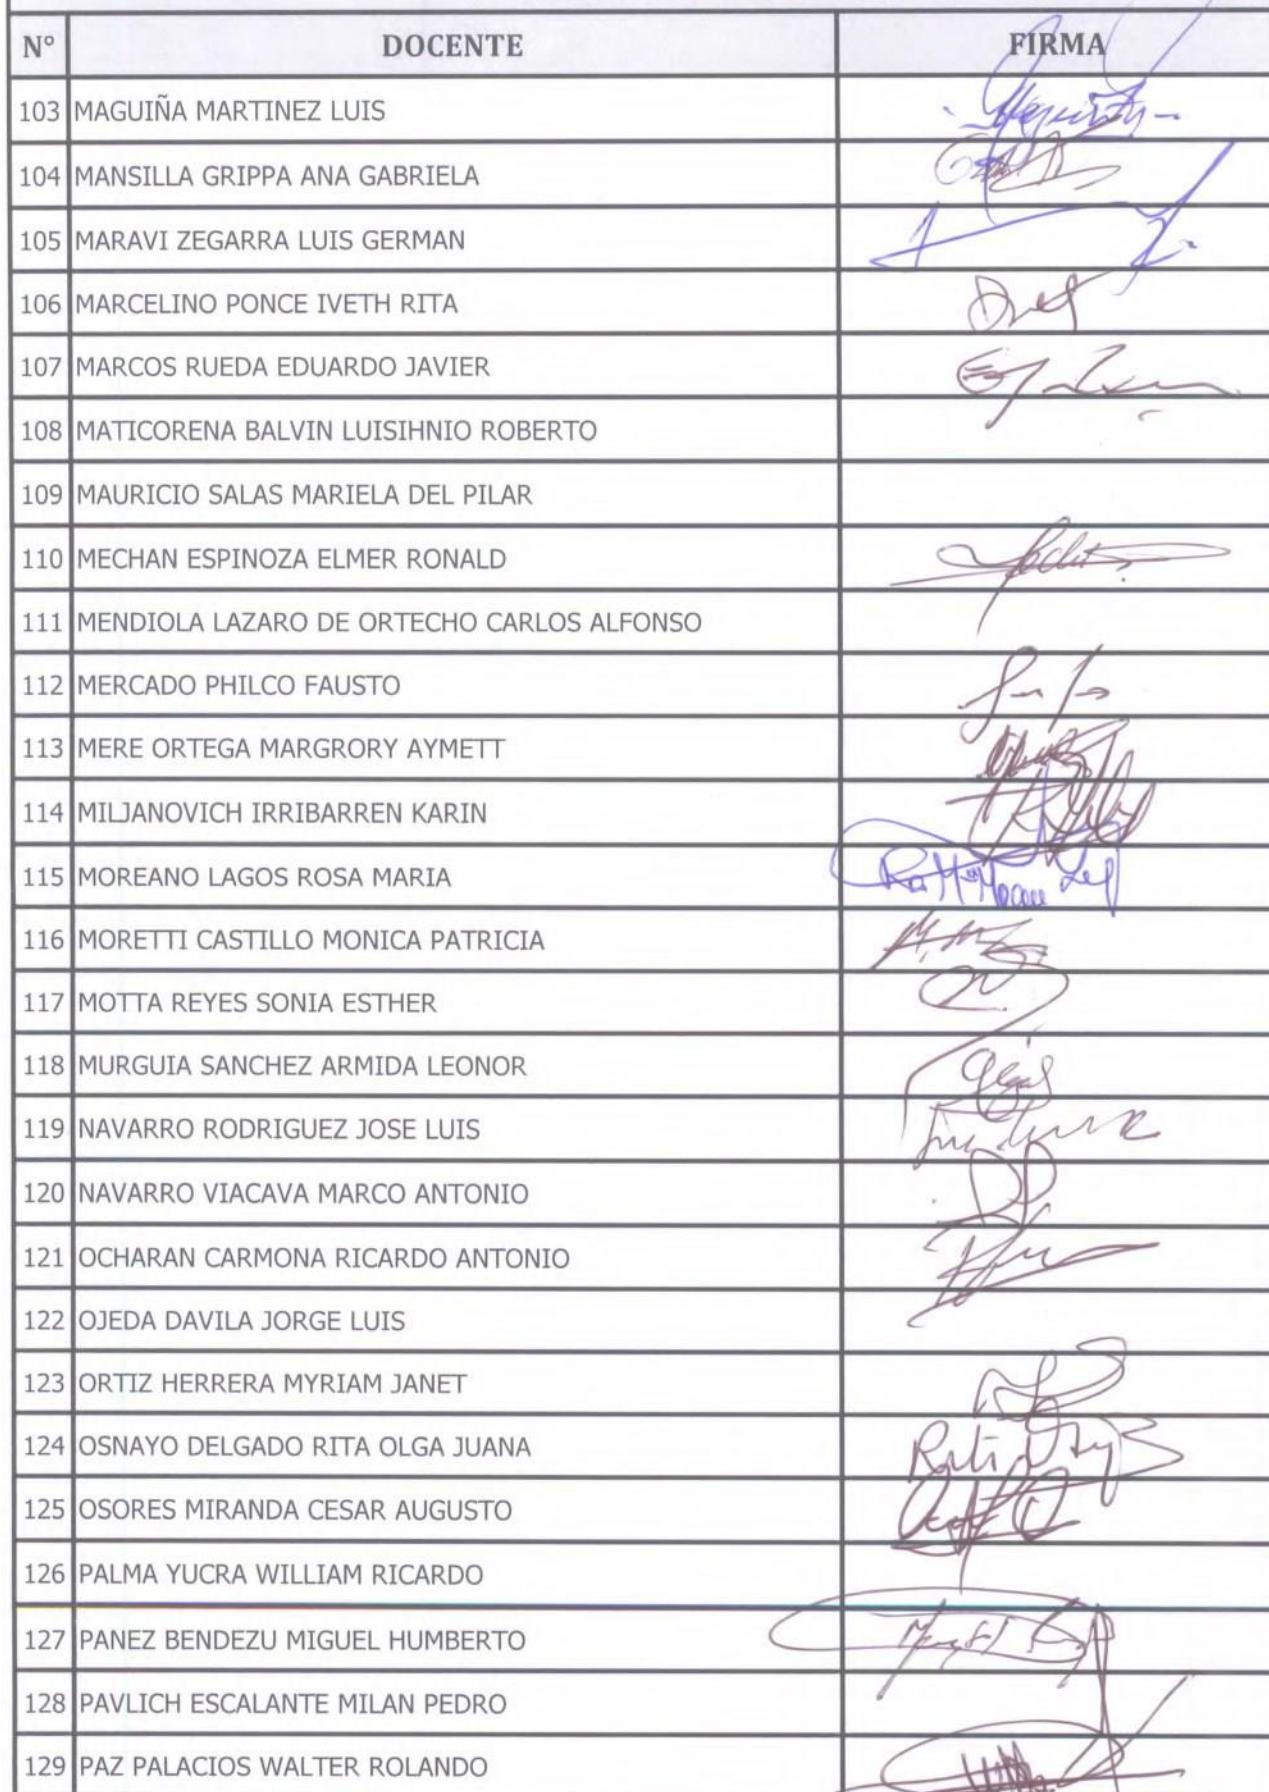 N° DOCENTE FIRMA
103 MAGUIÑA MARTINEZ LUIS
104 MANSILLA GRIPPA ANA GABRIELA
105 MARAVI ZEGARRA LUIS GERMAN
106 MARCELINO PONCE IVETH RITA
107 MARCOS RUEDA EDUARDO JAVIER
108 MATICORENA BALVIN LUISIHNIO ROBERTO
109 MAURICIO SALAS MARIELA DEL PILAR
110 MECHAN ESPINOZA ELMER RONALD
111 MENDIOLA LAZARO DE ORTECHO CARLOS ALFONSO
112 MERCADO PHILCO FAUSTO
113 MERE ORTEGA MARGRORY AYMETT
114 MILJANOVICH IRRIBARREN KARIN
115 MOREANO LAGOS ROSA MARIA
116 MORETTI CASTILLO MONICA PATRICIA
117 MOTTA REYES SONIA ESTHER
118 MURGUIA SANCHEZ ARMIDA LEONOR
119 NAVARRO RODRIGUEZ JOSE LUIS
120 NAVARRO VIACAVA MARCO ANTONIO
121 OCHARAN CARMONA RICARDO ANTONIO
122 OJEDA DAVILA JORGE LUIS
123 ORTIZ HERRERA MYRIAM JANET
124 OSNAYO DELGADO RITA OLGA JUANA
125 OSORES MIRANDA CESAR AUGUSTO
126 PALMA YUCRA WILLIAM RICARDO
127 PANEZ BENDEZU MIGUEL HUMBERTO
128 PAVLICH ESCALANTE MILAN PEDRO
129 PAZ PALACIOS WALTER ROLANDO